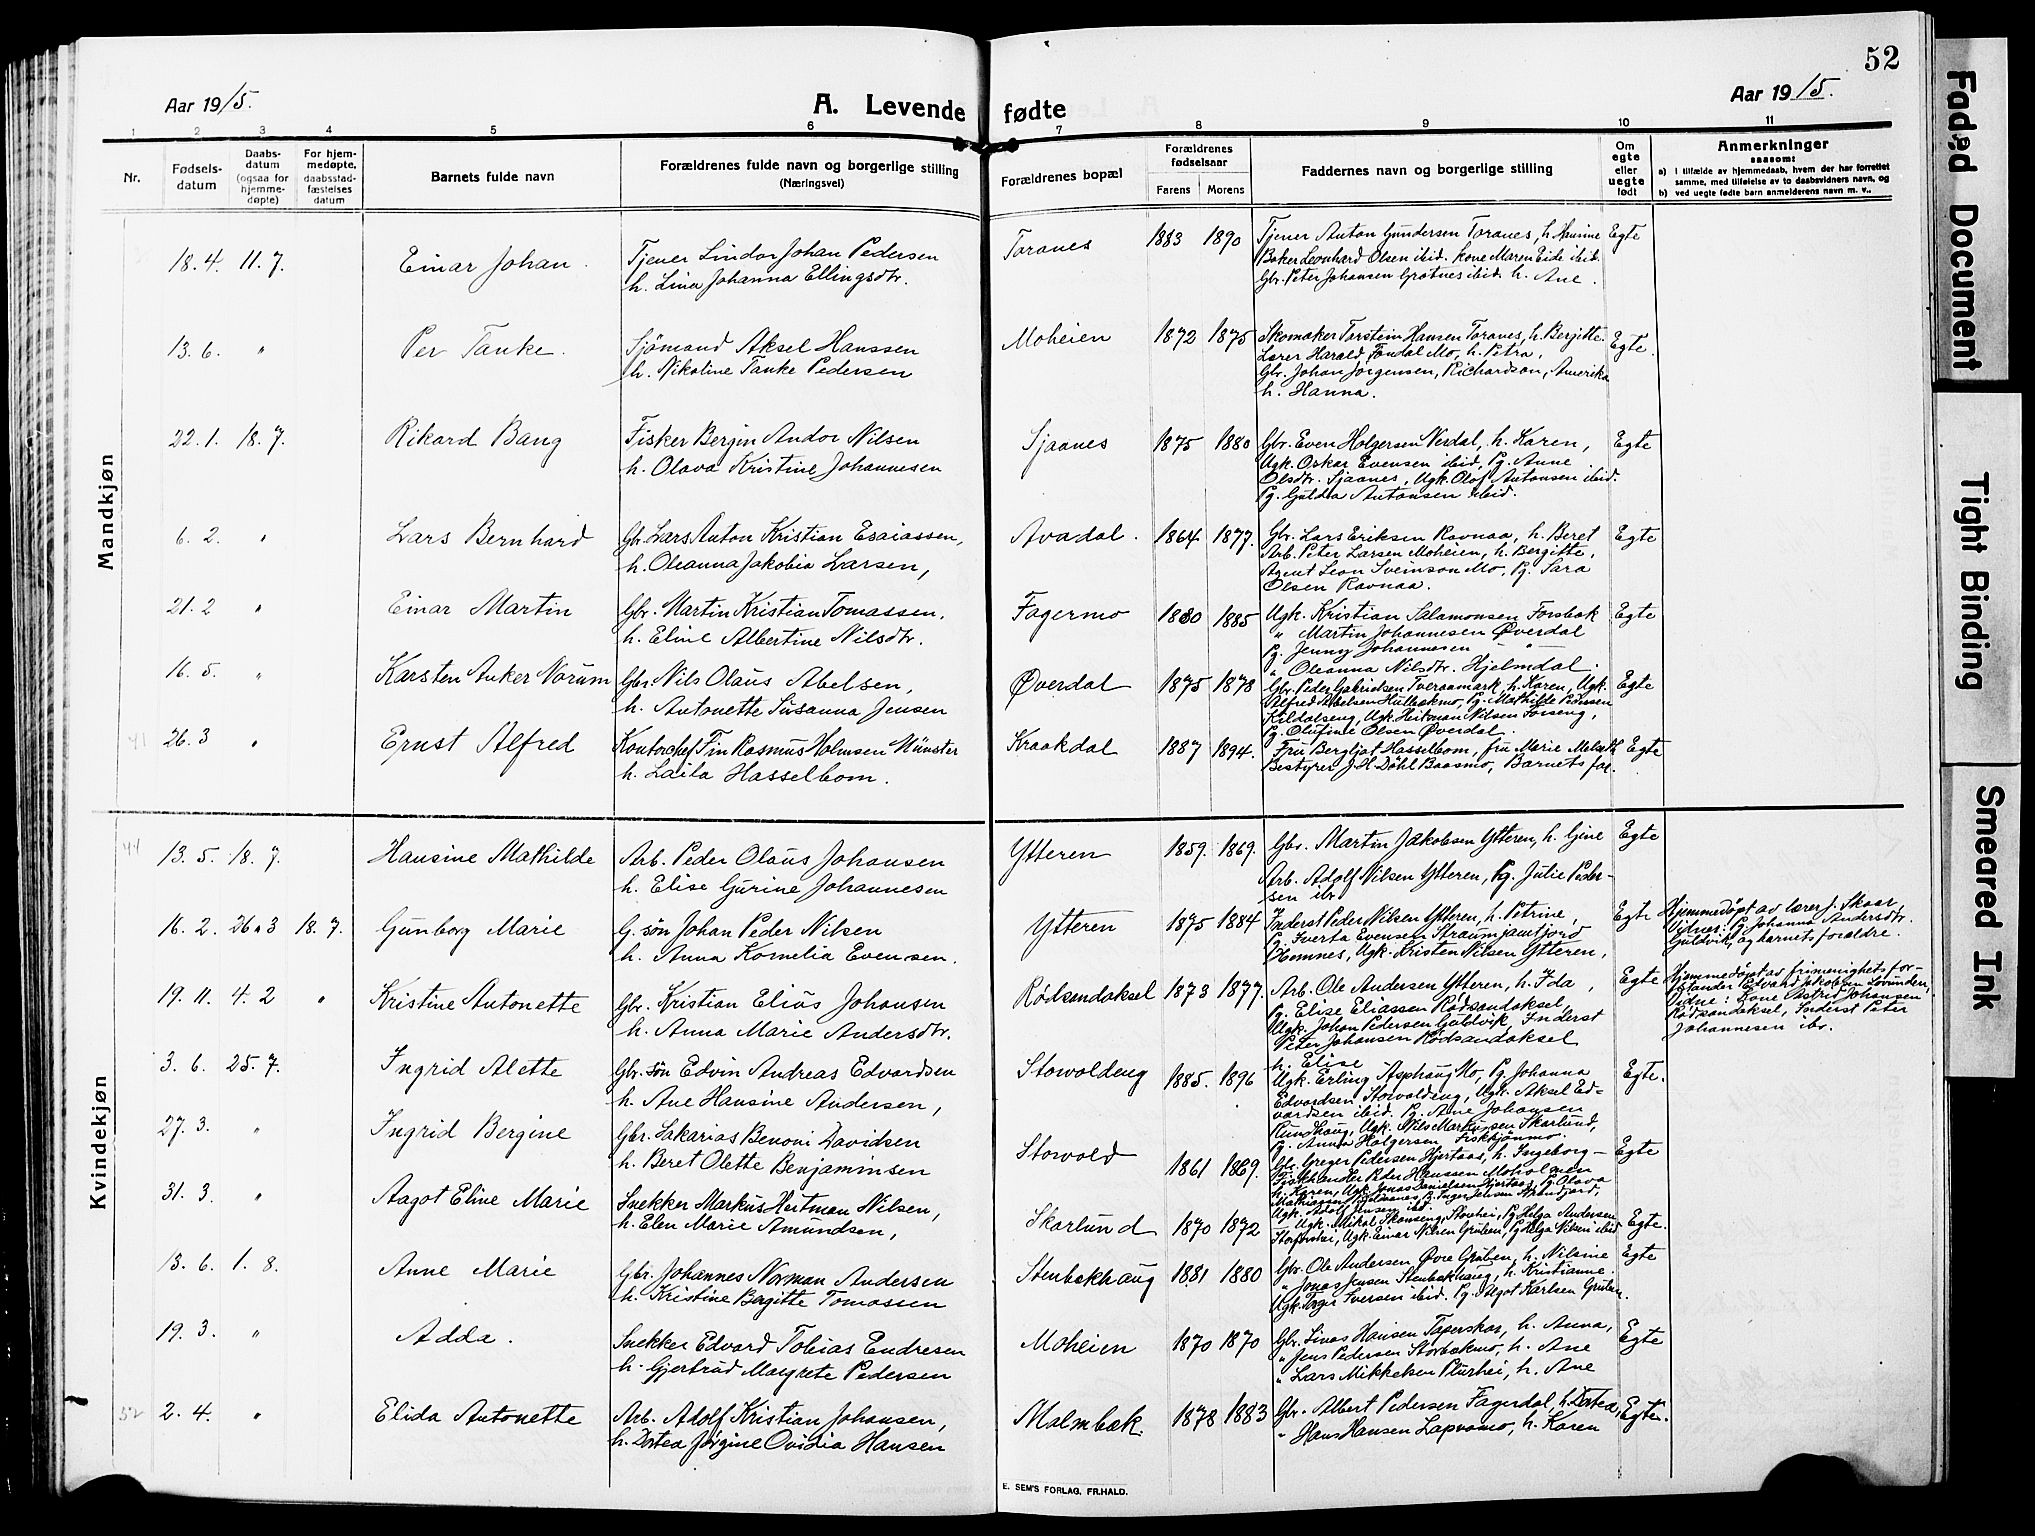 52
Aar 1915.
A. Levende fødte
Aar 1915.
1 2 3 4 5 6 7 8 9 10 11
Nr.
Fødsels-
datum
Daabs-
datum
(ogsaa for
hjemme-
døpte)
For hjem-
medøpte,
daabsstad-
fæstelses
datum
Barnets fulde navn
Forældrenes fulde navn og borgerlige stilling
(Næringsvei)
Forældrenes bopæl
Forældrenes
fødselsaar
Farens Morens
Faddernes navn og borgerlige stilling
Om
egte
eller
uegte
født
Anmerkninger
saasom:
a) i tilfælde av hjemmedaab, hvem der har forrettet
samme, med tilføielse av to daabsvidners navn, og
b) ved uegte fødte barn anmelderens navn m. v..
Mandkjøn
18.4. 11.7. Einar Johan. Tjener Lindor Johan Pedersen
h. Lina Johanna Ellingsdtr.
Toranes 1883 1890
Tjener Anton Gundersen Toranes, h. Hansine
Baker Leonhard Olsen ibid. kone Maren Eide ibid.
Gbr. Peter Johansen Grotnes ibid. h. Ane.
Egte
13.6. " Per Tanke. Sjömand Aksel Hanssen
h. Nikoline Tanke Pedersen
Moheien 1872 1875
Skomaker Torstein Hansen Toranes, h. Bergitte.
Lærer Harald Fondal Mo, h. Petra,
Gbr. Johan Jorgensen, Richardson, Amerika
h. Hanna.
Egte.
22.1. 18.7. Rikard Bang Fisker Bergin Andor Nilsen
h. Olava Kristine Johannesen
Sjaanes 1875 1880
Gbr. Even Holgersen Nerdal, h. Karen,
Ugk. Oskar Evensen ibid, Pg. Anne
Olsdtr. Sjaanes, Ugk. Olof Antonsen ibid.
Pg. Gulda Antonsen ibid.
Egte
6.2. " Lars Bernhard Gbr. Lars Anton Kristian Esaiassen,
h. Oleanna Jakobia Larsen,
Avadal. 1864 1877.
Gbr. Lars Eriksen Ravnaa, h. Beret
Arb. Peter Larsen Moheien, h. Bergitte,
Agent Leon Sveinson Mo, Pg. Sara
Olsen Ravnaa.
Egte
21.2 " Einar Martin Gbr. Martin Kristian Tomassen,
h. Eline Albertine Nilsdtr.
Fagermo 1880 1885
Ugk. Kristian Salamonsen Forsbak
" Martin Johannesen Øverdal
Pg. Jenny Johannesen "
" Oleanna Nilsdtr. Hjelmdal.
Egte
16.5. " Karsten Anker Norum Gbr. Nils Olaus Abelsen,
h. Antonette Susanna Jensen
Øverdal 1875 1878
Gbr. Peder Gabrielsen Tveraamark, h. Karen, Ugk.
Alfred Abelsen Hulbækmo, Pg. Mathilde Pederssen
Kildalseng, Ugk. Heitman Nilsen Forseng,
Pg. Olufine Olsen Øverdal.
Egte
41 26.3 " Ernst Alfred Kontorchef Fin Rasmus Holmsen Münster
h. Laila Hasselbom.
Kraakdal 1887 1894.
Fru Bergljot Hasselbom, fru Marie
Bestyrer J. H. Döhl Baasmo, Barnets far.
Egte
Kvindekjøn
44 13.5. 18.7. Hansine Mathilde Arb. Peder Olaus Johansen
h. Elise Gurine Johannesen
Ytteren 1859. 1869.
Gbr. Martin Jakobsen Ytteren, h. Gine
Arb. Adolf Nilsen Ytteren, Pg. Julie Peder-
sen ibr
Egte
16.2. 26.3 18.7. Gunborg Marie G. søn Johan Peder Nilsen
h. Anna Kornelia Evensen.
Ytteren 1875 1884
Inderst Peder Nilsen Ytteren, h. Petrine,
Pg. Iverta Evensen Straumjamtjord
Hemnes, Ugk. Kristen Nilsen Ytteren,
Egte
Hjemmedøpt av lærer J. Skaar,
Vidner: Pg. Johanna Andersdtr.
Guldvik, og barnets forældre.
19.11. 4.2 " Kristine Antonette Gbr. Kristian Elias Johansen
h. Anna Marie Andersdtr.
Rödsandaksel 1873 1877.
Arb. Ole Andersen Ytteren, h. Ida,
Pg. Elise Eliassen Rödsandaksel,
Ugk. Johan Pedersen Guldvik, Inderst
Peter Johansen Rödsandaksel
h. Elise
Egte
Hjemmedøpt av frimenighetsfor-
stander Edvard Jakobsen Lovunden,
Vidne: Kone Astrid Johansen
Rödsandaksel, Inderst Peter
Johannesen ibr.
3.6. 25.7. Ingrid Alette Gbr. søn Edvin Andreas Edvardsen
h. Ane Hansine Andersen,
Storvoldeng 1885. 1896
Ugk. Erling Asphaug Mo, Pg. Johanna
Edvardsen Storvoldeng, Ugk. Aksel Ed-
vardsen ibid. Pg. Ane Johansen
Rundhaug, Ugk. Nils Markussen Skarlund,
Pg. Anna Holgersen Fisktjönmo.
Egte.
27.3. " Ingrid Bergine Gbr. Sakarias Benoni Davidsen
h. Beret Olette Benjaminsen
Storvold 1861 1869.
Gbr. Greger Pedersen Hjertaas, h. Ingeborg-
Fiskhandler Peter Hanssen Moholmen
h. Karen, Ugk. Jonas Danielsen Hjertaas, Pg. Olava
Ugk. Adolf Jensen ibd.
Egte
31.3. " Aagot Eline Marie Snekker Markus Hertman Nilsen,
h. Elen Marie Amundsen,
Skarlund 1870 1872
Ugk. Mikal Skanseng, Storhei, Pg. Helga Andersen
Storforshei, Ugk. Einar Nilsen Gruben, Pg. Helga Nilsen ibid
Egte.
13.6. 1.8. Anne Marie Gbr. Johannes Norman Andersen
h. Kristine Bergitte Tomassen
Stenbekhaug 1881 1880
Gbr. Ole Andersen Øvre Gruben, h. Nilsine
" Jonas Jensen Stenbekhaug, h. Kristianne.
Ugk. Inger Iversen ibid. Pg. Aagot Karlsen Gruben.
Egte
19.3. " Adda. Snekker Edvard Tobias Endresen
h. Gjertrud Margrete Pedersen
Moheien 1870 1870
Gbr. Linas Hansen Taperskar, h. Anna,
" Jens Pedersen Storbækmo, h. Ane
" Lars Mikkelsen Plurhei, h. Ane
Egte
52 2.4. " Elida Antonette Arb. Adolf Kristian Johansen,
h. Dortea Jörgine Ovidia Hansen
Malmbæk. 1878 1883
Gbr. Albert Pedersen Fagerdal, h. Dortea,
" Hans Hansen Lapvamo, h. Karen
Egte.
E. SEM'S FORLAG, FR.HALD.
Faded Document
Tight Binding
Smeared Ink